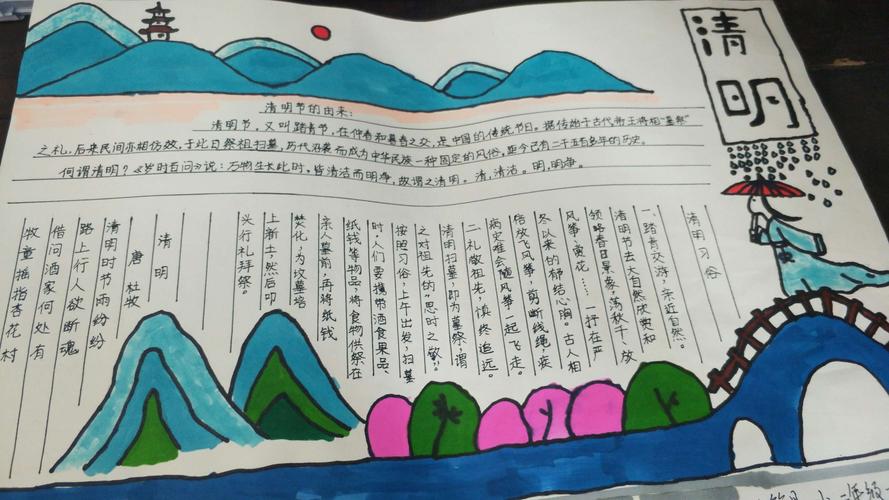 清明
清明节的由来:
清明节,又叫踏青节,在仲春和暮春之交,是中国的传统节日。据传始于古代帝王将相"墓祭"
之礼,后来民间亦相仿效,于此日祭祖扫墓,历代沿袭而成为中华民族一种固定的风俗,距今已有二千五百多年的历史。
何谓清明?《岁时百问》说:万物生长此时,皆清洁而明净,故谓之清明。清,清洁。明,明净。
清明习俗
一、踏青交游,亲近自然。
清明节去大自然欣赏和
领略春日景象,荡秋千、放
风筝,赏花……一抒在严
冬以来的郁结心胸。古人相
信放飞风筝,剪断线绳,疾
病灾难会随风筝一起飞走。
二礼敬祖先,慎终追远。
清明扫墓,即为墓祭,谓
之对祖先的"思时之敬"。
按照习俗,上午出发,扫墓
时,人们要携带酒食果品、
纸钱等物品,将食物供祭在
亲人墓前,再将纸钱
焚化,为坟墓培
上新土,然后叩
头行礼拜祭。
清明
唐 杜牧
清明时节雨纷纷
路上行人欲断魂
借问酒家何处有
牧童摇指杏花村